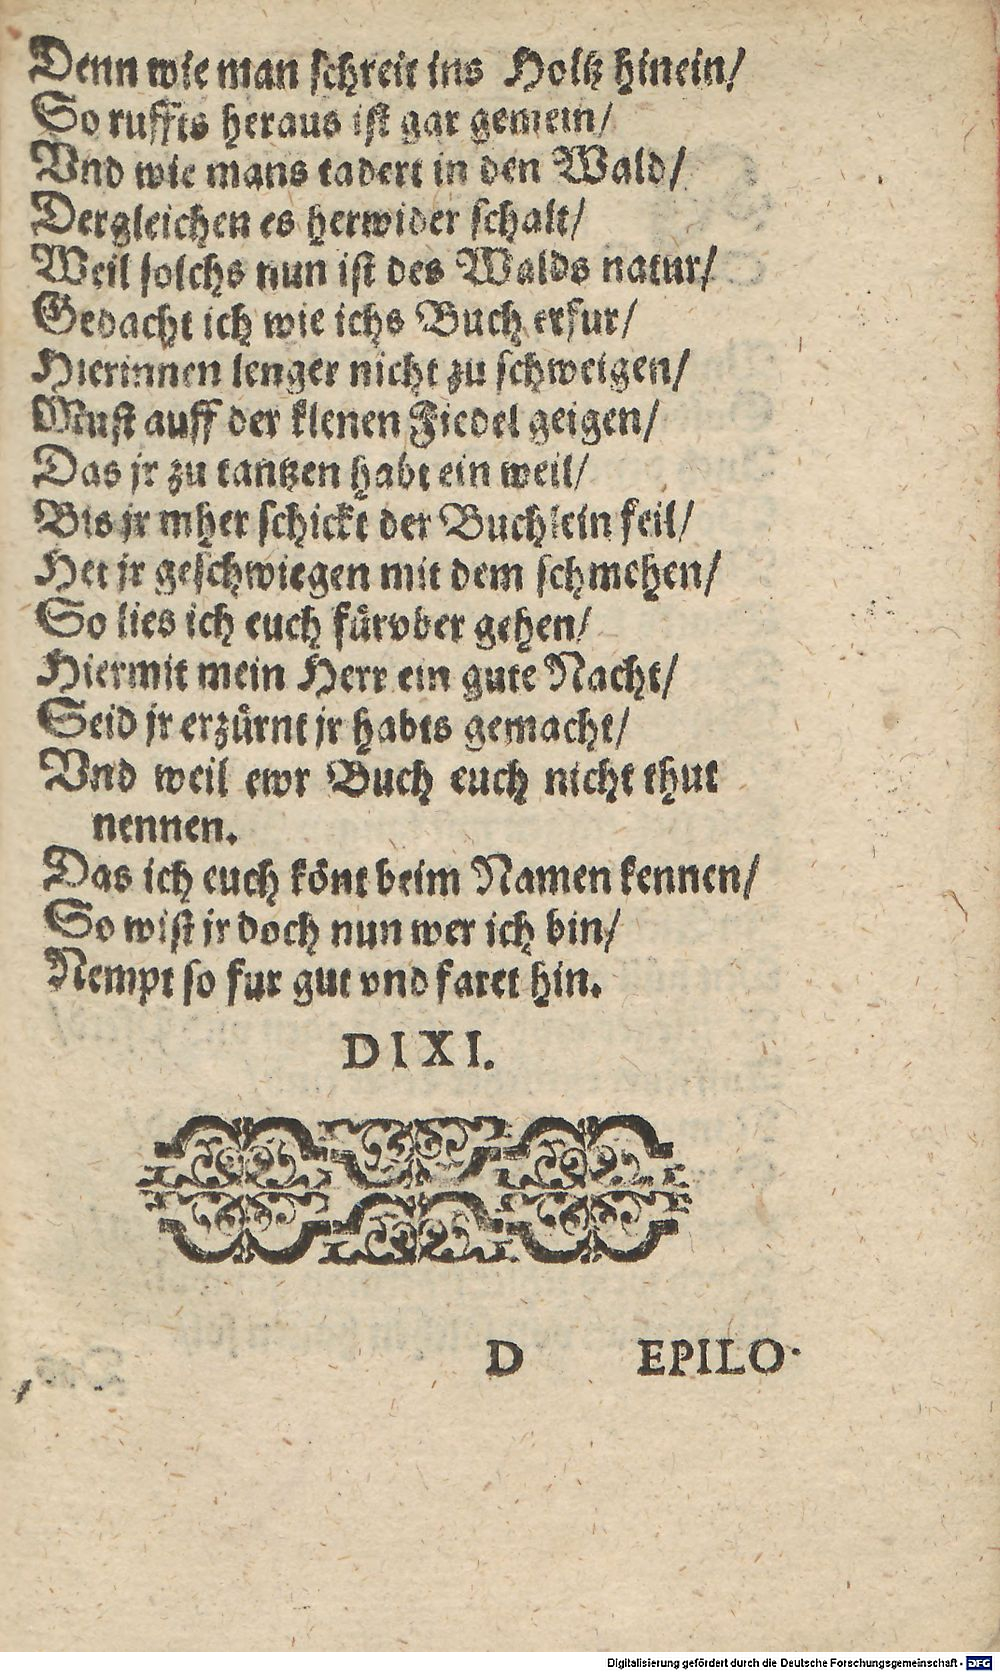 Denn wie man schreit ins Holtz hinein/
So ruffts heraus ist gar gemein/
Vnd wie mans tadert in den Wald/
Dergleichen es herwider schalt/
Weil solchs nun ist des Walds natur/
Gedacht ich wie ichs Buch erfur/
Hierinnen lenger nicht zu schweigen/
Must auff der klenen Fiedel geigen/
Das jr zu tantzen habt ein weil/
Bis jr mher schickt der Buchlein feil/
Het jr geschwiegen mit dem schmehen/
So lies ich euch fürvber gehen/
Hiermit mein Herr ein gute Nacht/
Seid jr erzürnt jr habts gemacht/
Vnd weil ewr Buch euch nicht thut
nennen.
Das ich euch könt beim Namen kennen/
So wist jr doch nun wer ich bin/
Nempt so fur gut vnd faret hin.
DIXI.
D EPILO-
Digitalisierung gefördert durch die Deutsche Forschungsgemeinschaft - DFG